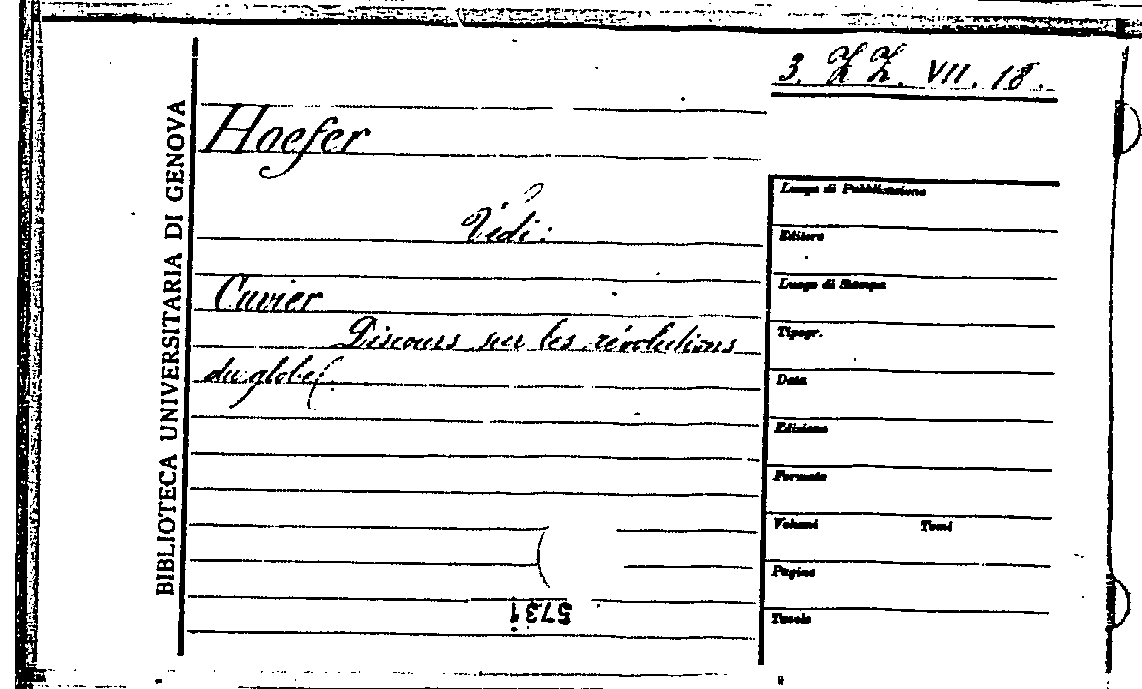 3. ZZ. VII. 18.
BIBLIOTECA UNIVERSITARIA DI GENOVA
Hoefer
Vedi:
Cuvier
Discours sur les révolutions
du globe.
Luogo di Pubblicazione
Editore
Luogo di Stampa
Tipogr.
Data
Edizione
Formato
Volumi Tomi
Pagine
Tavole
5731